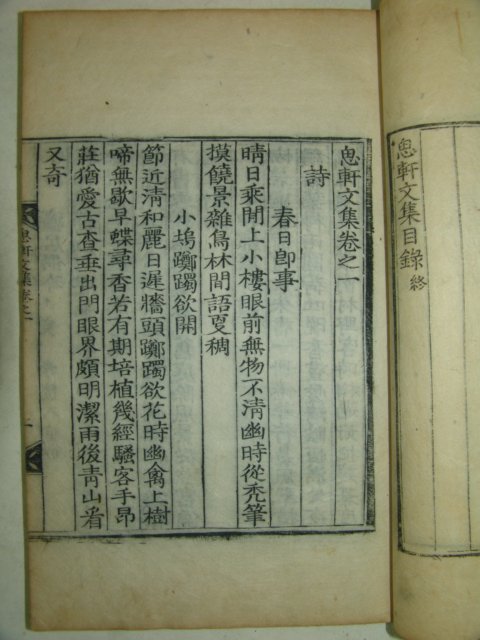 恖軒文集目錄終
恖軒文集卷之一
詩
春日卽事
晴日乘閒上小樓眼前無物不淸幽時從禿筆
摸饒景雜鳥林間語戛稠
小塢躑躅欲開
節近淸和麗日遲墻頭躑躅欲花時幽禽上樹
啼無歇早蝶尋香若有期培植幾經騷客手昂
莊猶愛古査垂出門眼界頗明潔雨後靑山看
又奇
恖軒文集卷之一
一